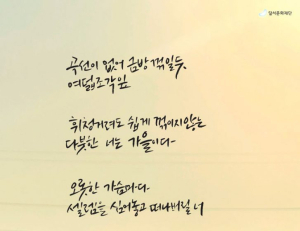 달서문화재단
곡선이 없어 금방 꺾일듯,
여덟조각잎
휘청거려도 쉽게 꺾이지않는
다붓한 너는 가을이다-
오롯한 가슴마다
설렘을 심어놓고 떠나버릴 너